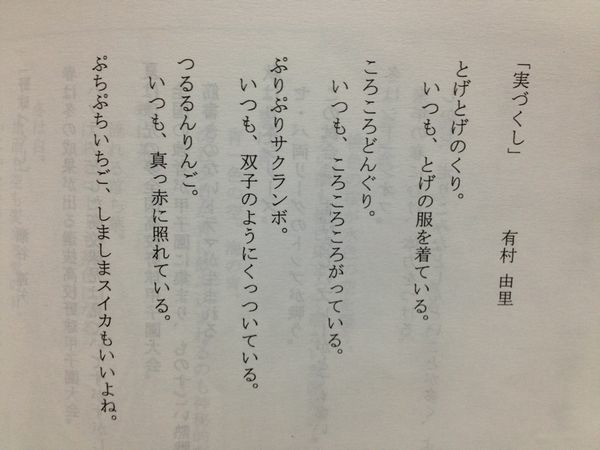 「実づくし」
有村 由里
とげとげのくり。
いつも、とげの服を着ている。
ころころどんぐり。
いつも、ころころころがっている。
ぷりぷりサクランボ。
いつも、双子のようにくっついている。
つるるんりんご。
いつも、真っ赤に照れている。
ぷちぷちいちご、しましまスイカもいいよね。